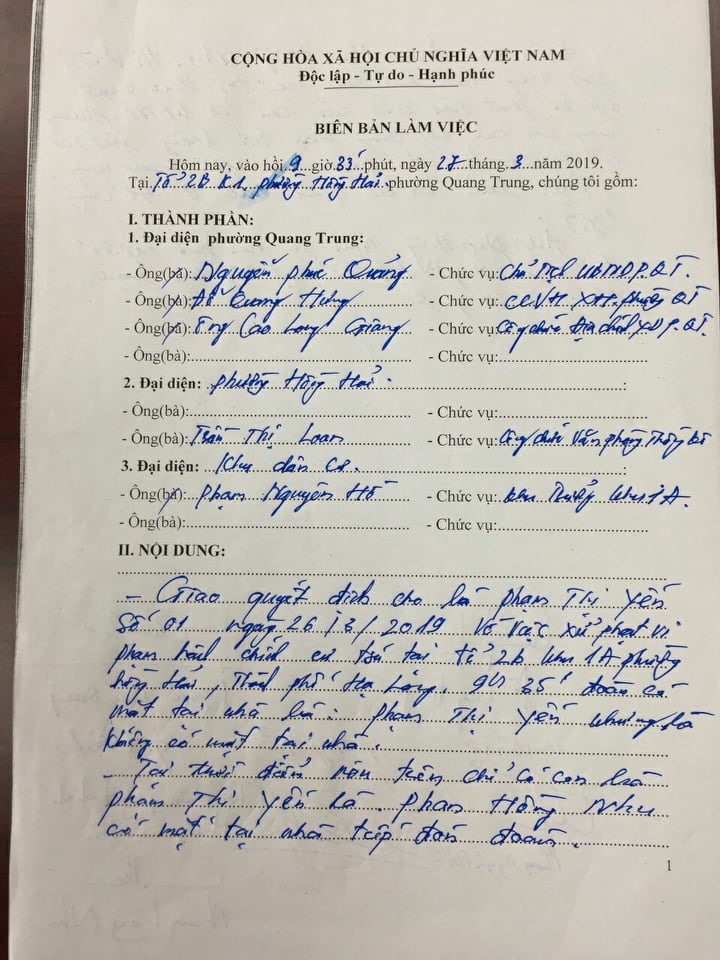 CỘNG HÒA XÃ HỘI CHỦ NGHĨA VIỆT NAM
Độc lập - Tự do - Hạnh phúc
BIÊN BẢN LÀM VIỆC
Hôm nay, vào hồi 9 giờ 33 phút, ngày 27 tháng 3 năm 2019.
Tại Tổ 2B K1, phường Hồng Hải, phường Quang Trung, chúng tôi gồm:
I. THÀNH PHẦN:
1. Đại diện phường Quang Trung:
- Ông(bà): Nguyễn Phúc Quảng - Chức vụ: Chủ Tịch UBND P.QT.
- Ông(bà): Đỗ Cương Hưng - Chức vụ: CCVH.XH phường QT
- Ông(bà): Ông Cao Long Giang - Chức vụ: Công chức Địa chính XD P.QT.
- Ông(bà): - Chức vụ:
2. Đại diện: phường Hồng Hải. :
- Ông(bà): - Chức vụ:
- Ông(bà): Trần Thị Loan - Chức vụ: Công chức Văn phòng Thống kê
3. Đại diện: Khu dân cư. :
- Ông(bà): Phạm Nguyên Hồ - Chức vụ: khu 1A.
- Ông(bà): - Chức vụ:
II. NỘI DUNG:
- Giao quyết định cho bà Phạm Thị Yến
Số 01 ngày 26/3/2019 Về việc xử phạt vi
phạm hành chính cư trú tại tổ 2b khu 1A phường
Hồng Hải, Thành phố Hạ Long. 9h 25' đoàn có
mặt tại nhà bà: Phạm Thị Yến nhưng bà
không có mặt tại nhà.
- Tại thời điểm nêu trên chỉ có con bà
Phạm Thị Yến là Phạm Hồng Nhu
có mặt tại nhà tiếp đón đoàn.
1